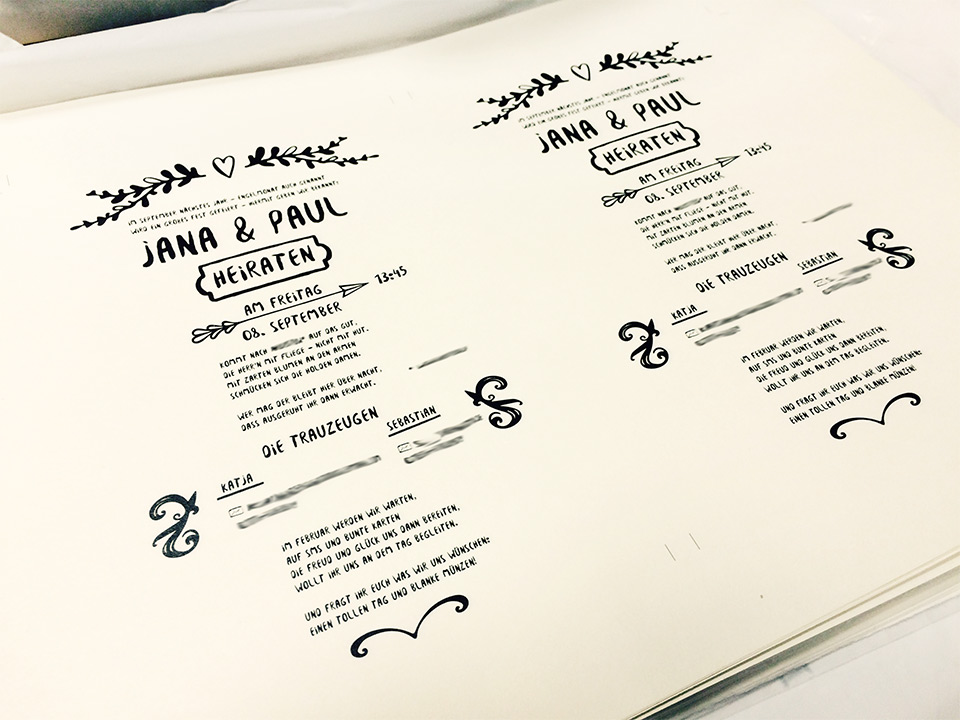 IM SEPTEMBER NÄCHSTES JAHR – ENGELMONAT AUCH GENANNT
WIRD EIN GROẞES FEST GEFEIERT – HIERMIT GEBEN WIR BEKANNT:
JANA & PAUL
HEIRATEN
AM FREITAG
13:45
08. SEPTEMBER
KOMMT NACH AUF DAS GUT.
DIE HERR'N MIT FLIEGE – NICHT MIT HUT.
MIT ZARTEN BLUMEN AN DEN ARMEN
SCHMÜCKEN SICH DIE HOLDEN DAMEN.
WER MAG DER BLEIBT HIER ÜBER NACHT.
DASS AUSGERUHT IHR DANN ERWACHT.
DIE TRAUZEUGEN
SEBASTIAN
KATJA
IM FEBRUAR WERDEN WIR WARTEN,
AUF SMS UND BUNTE KARTEN
DIE FREUD UND GLÜCK UNS DANN BEREITEN,
WOLLT IHR UNS AN DEM TAG BEGLEITEN.
UND FRAGT IHR EUCH WAS WIR UNS WÜNSCHEN:
EINEN TOLLEN TAG UND BLANKE MÜNZEN!
IM SEPTEMBER NÄCHSTES JAHR – ENGELMONAT AUCH GENANNT
WIRD EIN GROẞES FEST GEFEIERT – HIERMIT GEBEN WIR BEKANNT:
JANA & PAUL
HEIRATEN
AM FREITAG
13:45
08. SEPTEMBER
KOMMT NACH AUF DAS GUT.
DIE HERR'N MIT FLIEGE – NICHT MIT HUT.
MIT ZARTEN BLUMEN AN DEN ARMEN
SCHMÜCKEN SICH DIE HOLDEN DAMEN.
WER MAG DER BLEIBT HIER ÜBER NACHT.
DASS AUSGERUHT IHR DANN ERWACHT.
DIE TRAUZEUGEN
SEBASTIAN
KATJA
IM FEBRUAR WERDEN WIR WARTEN,
AUF SMS UND BUNTE KARTEN
DIE FREUD UND GLÜCK UNS DANN BEREITEN,
WOLLT IHR UNS AN DEM TAG BEGLEITEN.
UND FRAGT IHR EUCH WAS WIR UNS WÜNSCHEN:
EINEN TOLLEN TAG UND BLANKE MÜNZEN!